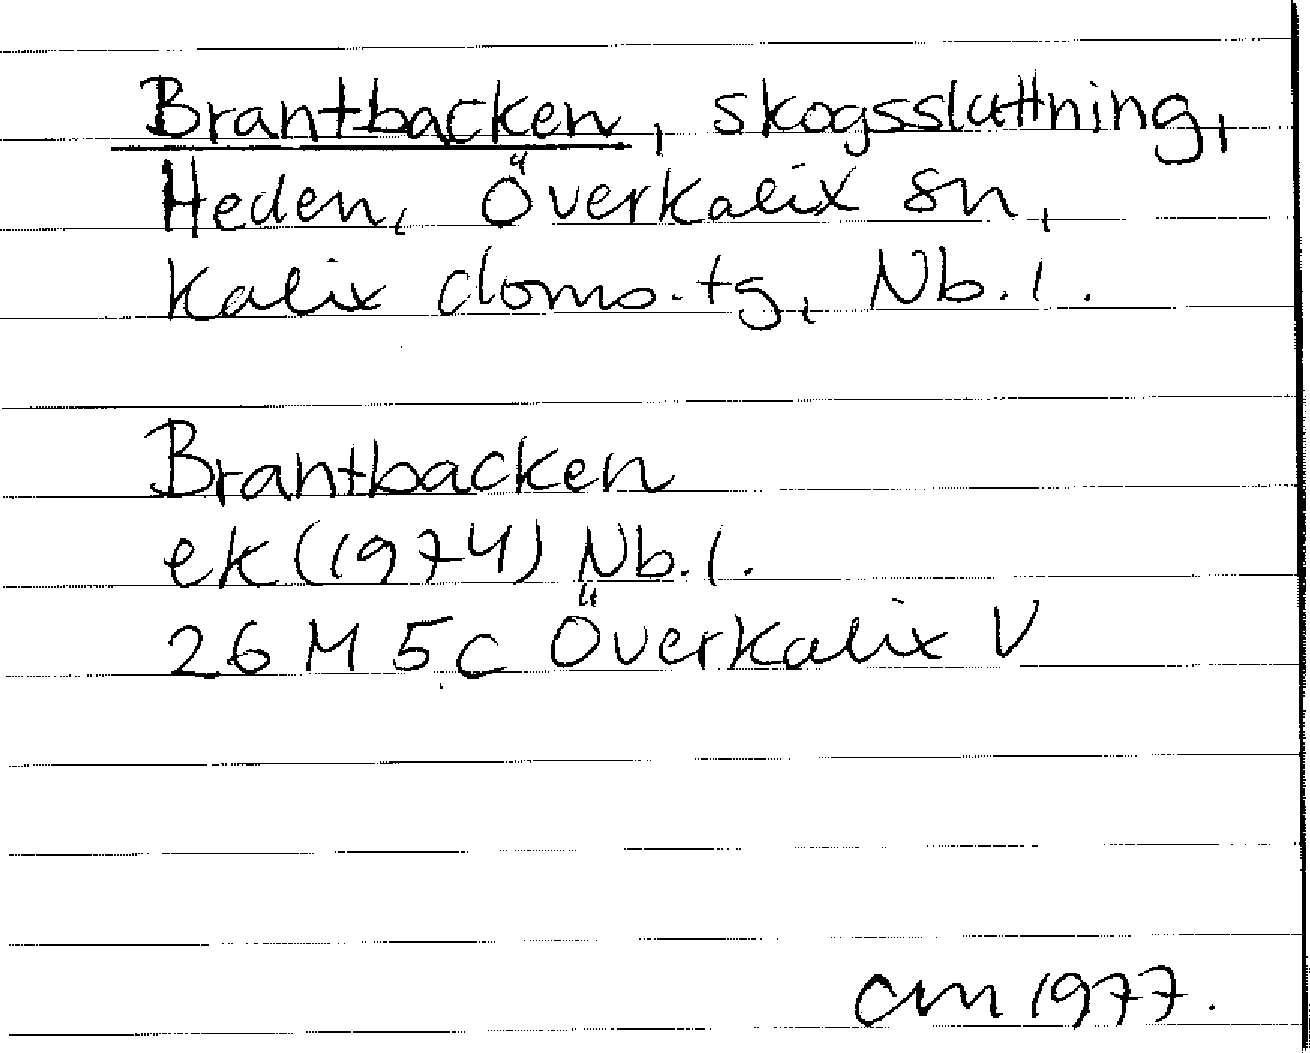 Brantbacken, skogssluttning,
Heden, Överkalix sn,
Kalix doms.tg, Nb.l.
Brantbacken
ek (1974) Nb.l.
26 M 5c Överkalix V
cm 1977.